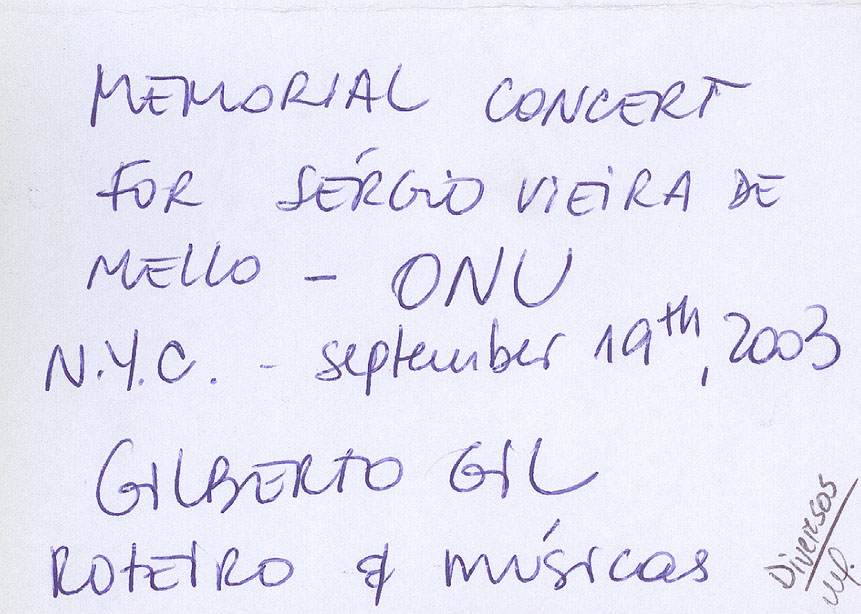 MEMORIAL CONCERT
FOR SÉRGIO VIEIRA DE
MELLO - ONU
N.Y.C. - september 19th, 2003
GILBERTO GIL
ROTEIRO & músicas
Diversos